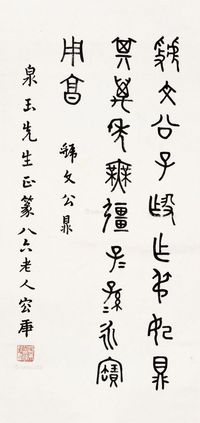 虢文公子㱿乍叔妃鼎
其萬年無疆子=孫=永寶
用享
虢文公鼎
泉玉先生正篆 八六老人容庚